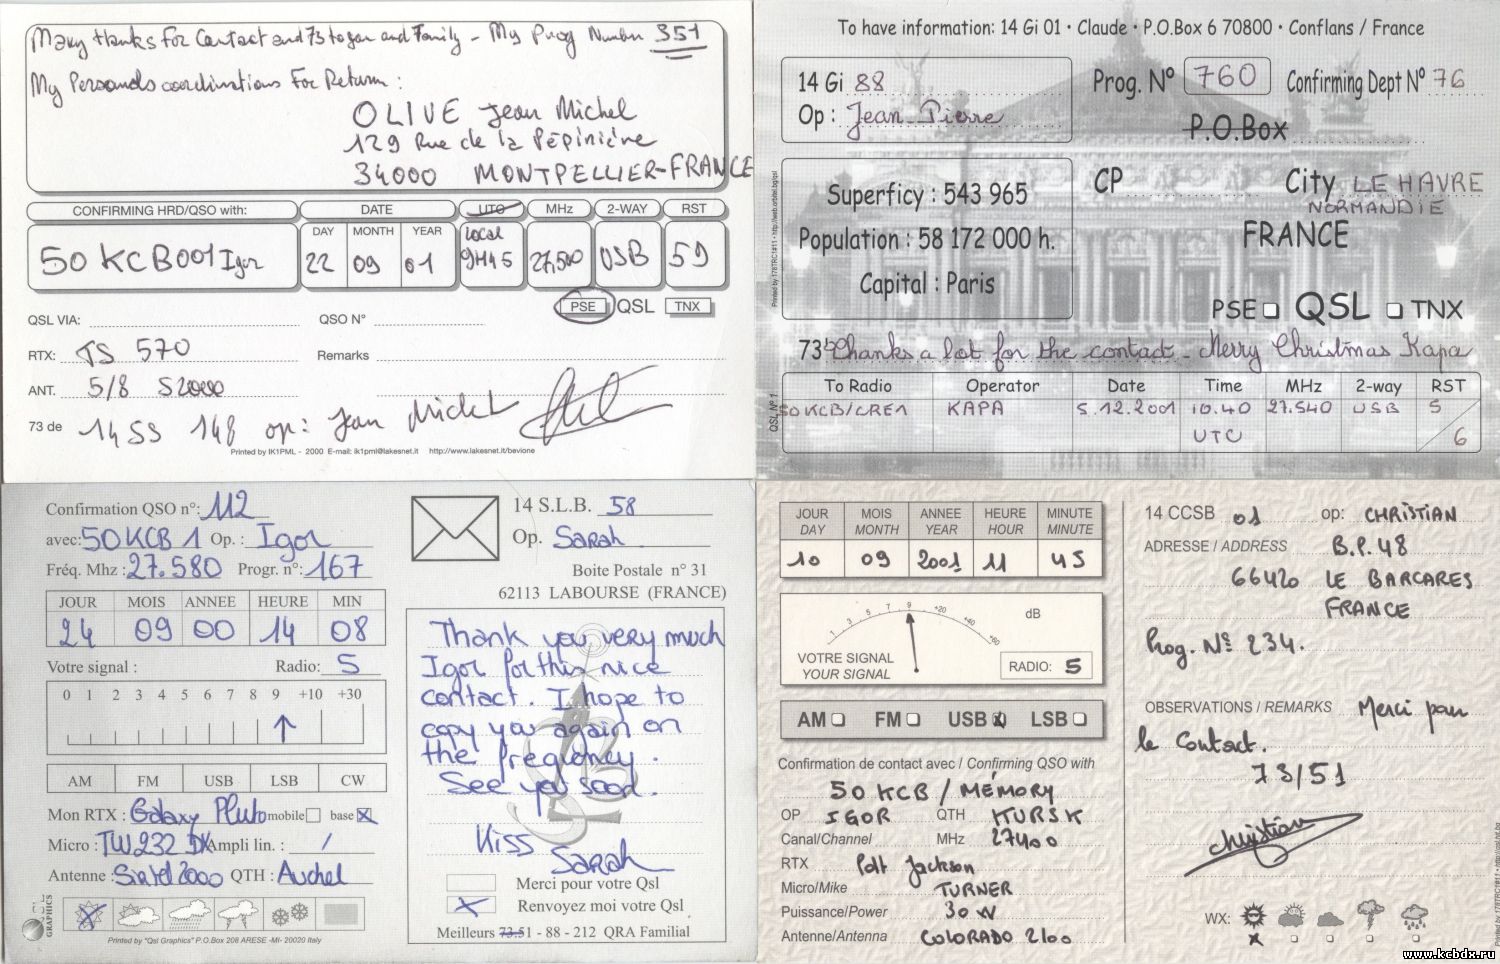 Many thanks for Contact and 73 to you and Family - My Prog Number 351
My Personals coordinations For Return :
OLIVE Jean Michel
129 Rue de la Pépinière
34000 MONTPELLIER-FRANCE
CONFIRMING HRD/QSO with: DATE UTC MHz 2-WAY RST
DAY MONTH YEAR
50 KCB001 Igor 22 09 01 Local 9H45 27,500 USB 59
PSE QSL TNX
QSL VIA: QSO N°
RTX: TS 570 Remarks
ANT. 5/8 S2000
73 de 14 SS 148 op: Jean Michel
Printed by IK1PML - 2000 E-mail: ik1pml@lakesnet.it http://www.lakesnet.it/bevione
To have information: 14 Gi 01 • Claude • P.O.Box 6 70800 • Conflans / France
14 Gi 88
Op : Jean-Pierre
Prog. N° 760 Confirming Dept N° 76
P.O.Box
Superficy : 543 965
Population : 58 172 000 h.
Capital : Paris
CP City LE HAVRE
NORMANDIE
FRANCE
PSE QSL TNX
73 Thanks a lot for the contact - Merry Christmas Kapa
To Radio Operator Date Time MHz 2-way RST
50 KCB/CRE1 KAPA 5.12.2001 10.40 27.540 USB 5
UTC 6
QSL N° 1
Confirmation QSO n°: 112
avec: 50 KCB 1 Op. : Igor
Fréq. Mhz : 27.580 Progr. n°: 167
JOUR MOIS ANNEE HEURE MIN
24 09 00 14 08
Votre signal : Radio: 5
0 1 2 3 4 5 6 7 8 9 +10 +30
AM FM USB LSB CW
Mon RTX : Galaxy Pluto mobile base
Micro : TW232 DX Ampli lin. : /
Antenne : Sirtel 2000 QTH : Auchel
QSL GRAPHICS
Printed by "Qsl Graphics" P.O.Box 208 ARESE -MI- 20020 Italy
14 S.L.B. 58
Op. Sarah
Boite Postale n° 31
62113 LABOURSE (FRANCE)
Thank you very much
Igor for this nice
contact. I hope to
copy you again on
the frequency.
See you sood.
Kiss
Sarah
Merci pour votre Qsl
Renvoyez moi votre Qsl
Meilleurs 73.51 - 88 - 212 QRA Familial
JOUR MOIS ANNÉE HEURE MINUTE
DAY MONTH YEAR HOUR MINUTE
10 09 2001 11 45
1 3 5 7 9 +20 +40 +60
dB
VOTRE SIGNAL
YOUR SIGNAL
RADIO: 5
AM FM USB LSB
Confirmation de contact avec / Confirming QSO with
50 KCB / MÉMORY
OP IGOR QTH KURSK
Canal/Channel MHz 27400
RTX Palt Jackson
Micro/Mike TURNER
Puissance/Power 30 W
Antenne/Antenna COLORADO 2100
14 CCSB 01 op: CHRISTIAN
ADRESSE / ADDRESS B.P. 48
66420 LE BARCARES
FRANCE
Prog. N° 234.
OBSERVATIONS / REMARKS Merci pour
le Contact.
73/51
Christian
WX:
www.kcbdx.ru